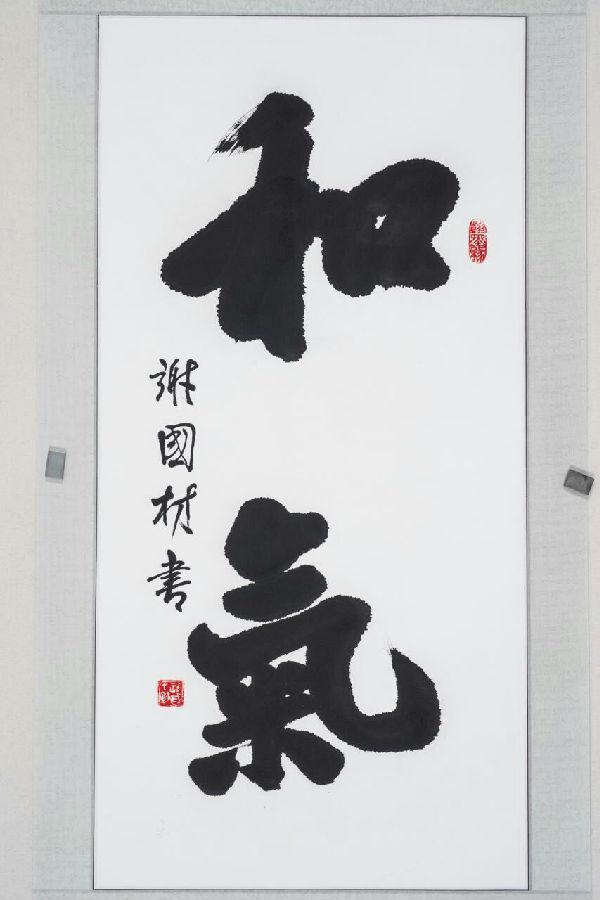 和氣
謝國材書